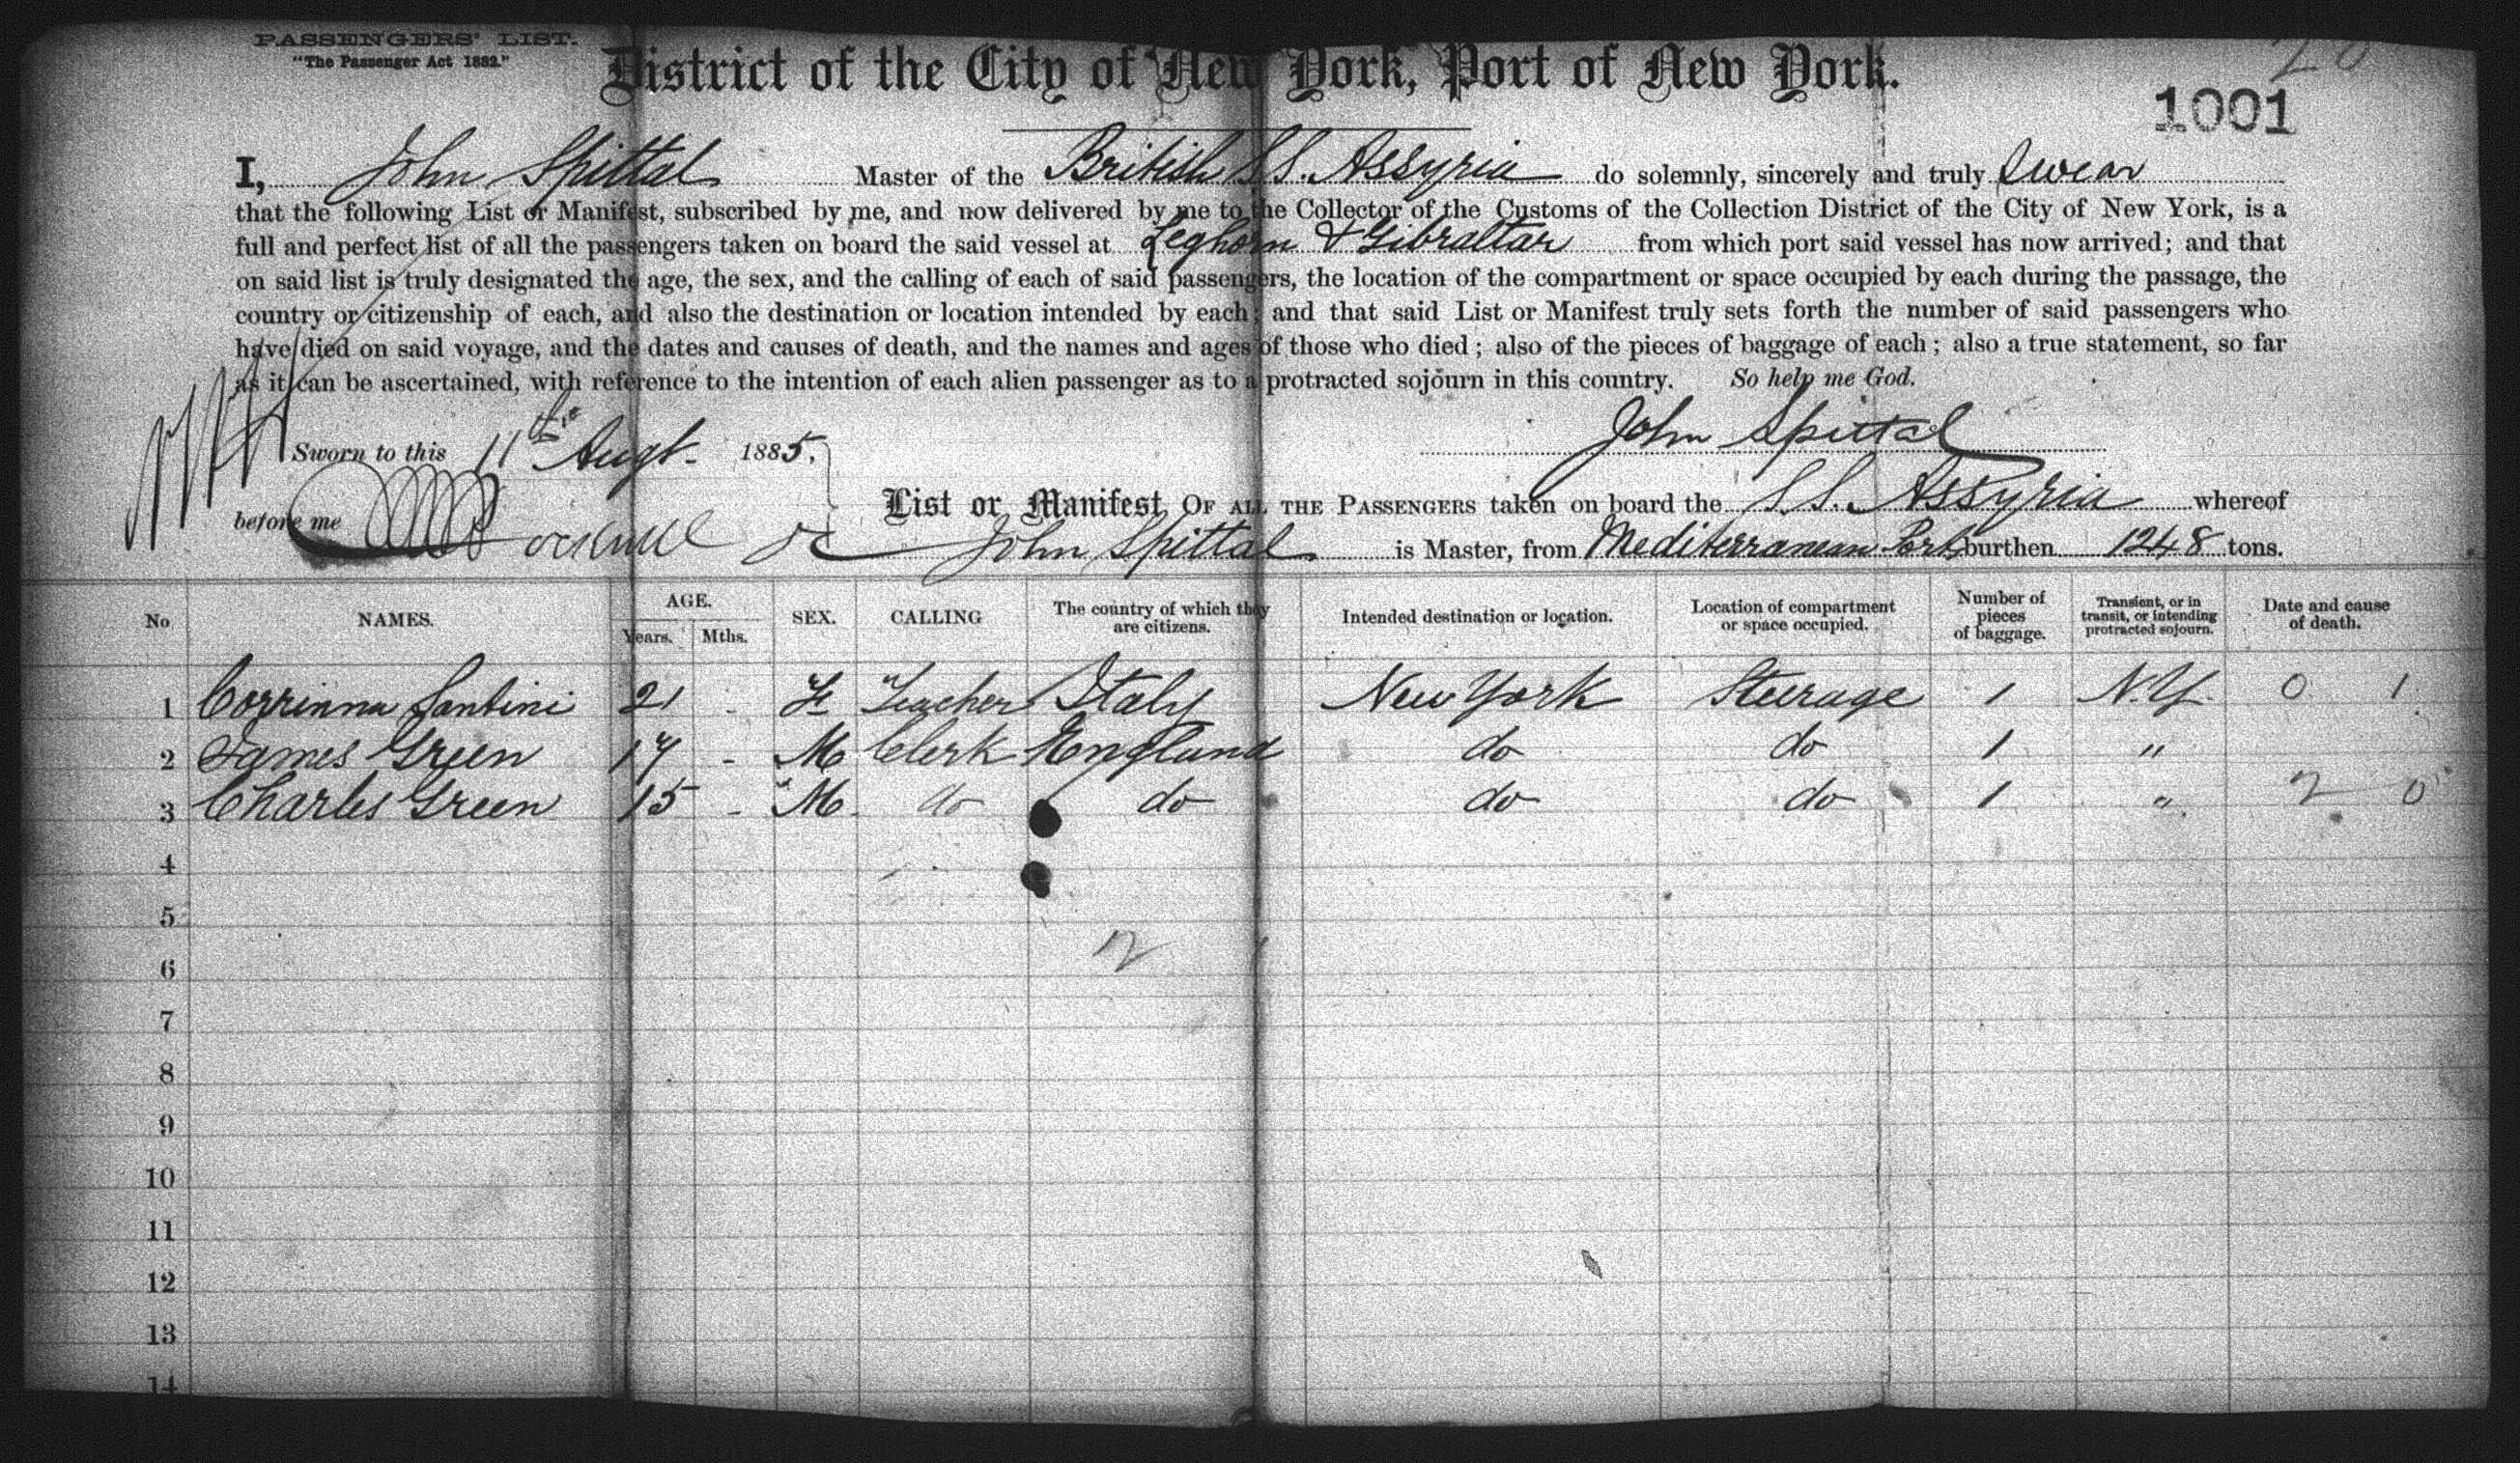 PASSENGERS' LIST.
"The Passenger Act 1882."
District of the City of New York, Port of New York.
1001
I, John Spittal Master of the British S.S. Assyria do solemnly, sincerely and truly Swear
that the following List or Manifest, subscribed by me, and now delivered by me to the Collector of the Customs of the Collection District of the City of New York, is a
full and perfect list of all the passengers taken on board the said vessel at Leghorn & Gibraltar from which port said vessel has now arrived; and that
on said list is truly designated the age, the sex, and the calling of each of said passengers, the location of the compartment or space occupied by each during the passage, the
country or citizenship of each, and also the destination or location intended by each; and that said List or Manifest truly sets forth the number of said passengers who
have died on said voyage, and the dates and causes of death, and the names and ages of those who died; also of the pieces of baggage of each; also a true statement, so far
as it can be ascertained, with reference to the intention of each alien passenger as to a protracted sojourn in this country. So help me God.
Sworn to this 11th Augt. 1885, John Spittal
before me
List or Manifest OF ALL THE PASSENGERS taken on board the S.S. Assyria whereof
John Spittal is Master, from Mediterranean Ports burthen 1248 tons.
No NAMES. AGE. Years. Mths. SEX. CALLING The country of which they are citizens. Intended destination or location. Location of compartment or space occupied. Number of pieces of baggage. Transient, or in transit, or intending protracted sojourn. Date and cause of death.
1 Corrinna Santini 21 - F Teacher Italy New York Steerage 1 N.Y. 0 1
2 James Green 17 - M Clerk England do do 1 "
3 Charles Green 15 - M. do do do do 1 " 2 0
4
5
6 2
7
8
9
10
11
12
13
14